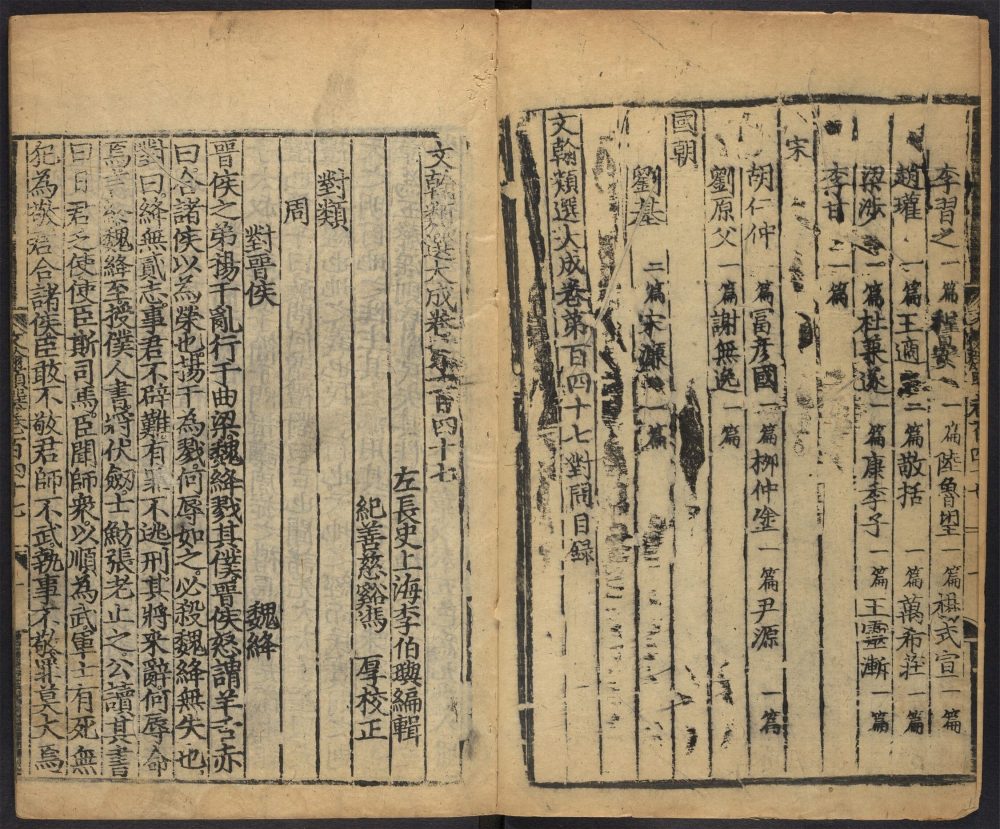 李習之 一篇 程晏 一篇 陸魯望 一篇 式宣 一篇
趙瓘 一篇 王適 二篇 敬括 一篇 萬希莊 一篇
梁涉 一篇 杜兼遂 一篇 康季子 一篇 王靈漸 一篇
李甘 二篇
宋
胡仁仲 一篇 富彥國 一篇 柳仲塗 一篇 尹源 一篇
劉原父 一篇 謝無逸 一篇
國朝
劉基 二篇 宋濂 一篇
文翰類選大成卷第百四十七對問目錄
文翰類選大成卷之一百四十七
左長史上海李伯璵編輯
紀善慈谿馮 厚校正
對類
周
對晉侯 魏絳
晉侯之弟揚干亂行于曲梁魏絳戮其僕晉侯怒謂羊舌赤
曰合諸侯以為榮也揚干為戮何辱如之必殺魏絳無失也
對曰絳無貳志事君不辟難有罪不逃刑其將來辭何辱命
焉言終魏絳至授僕人書將伏劔士魴張老止之公讀其書
曰日君乏使使臣斯司馬臣聞師衆以順為武軍士有死無
犯為敬君合諸侯臣敢不敬君師不武執事不敬罪莫大焉